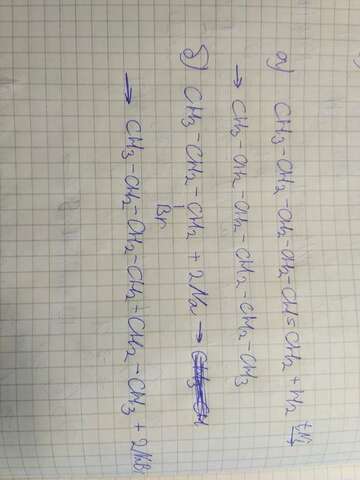 а) CH3-CH2-CH2-CH2-CH=CH2 + H2 t,Ni
→ CH3-CH2-CH2-CH2-CH2-CH3
б) CH3-CH2-CH2 + 2Na →
Br
→ CH3-CH2-CH2-CH2-CH2-CH3 + 2NaBr